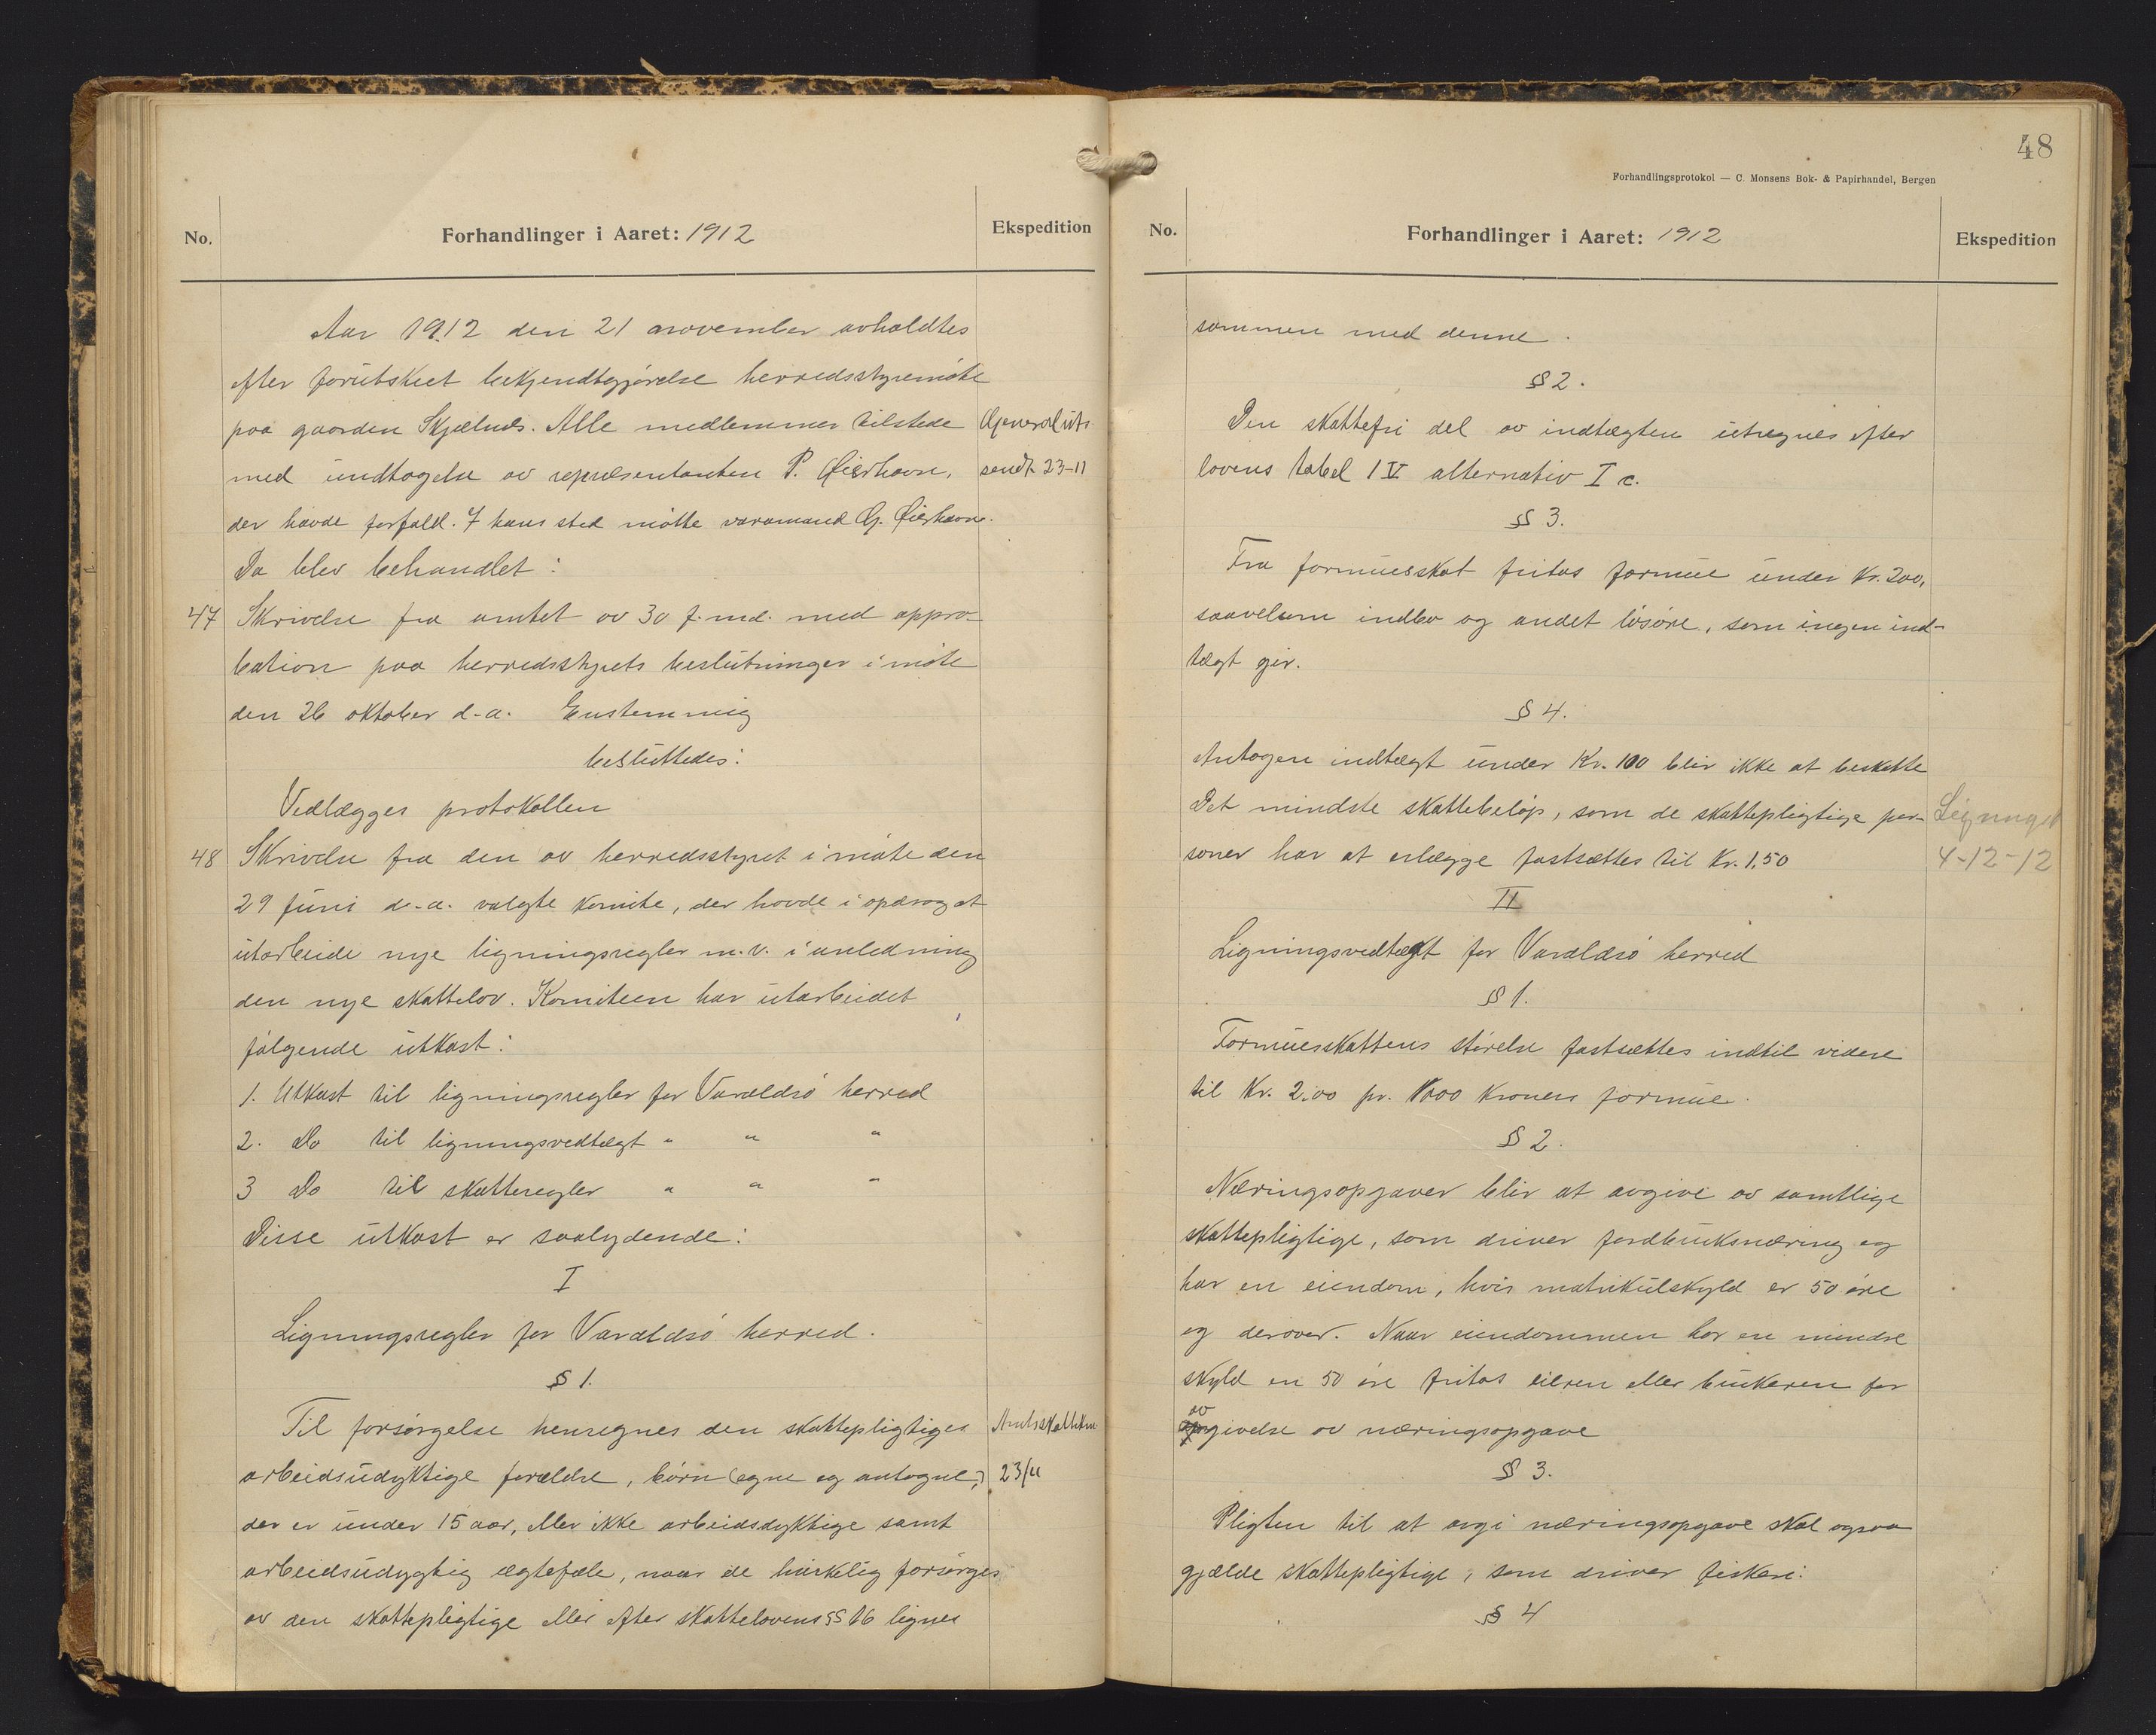 No.
Forhandlinger i Aaret: 1912
Ekspedition
Aar 1912 den 21 november avholdtes
efter forutskeet bekjendtgjørelse herredsstyremøte
paa gaarden Skjelnes. Alle medlemmer tilstede
med undtagelse av repræsentanten P.
der havde forfald. I hans sted møtte varamand G.
Da blev behandlet:
47 Skrivelse fra amtet av 30 f. md. med appro-
bation paa herredsstyrets beslutninger i møte
den 26 oktober d.a. Enstemmig
besluttedes:
Vedlægges protokollen
48 Skrivelse fra den av herredsstyret i møte den
29 juni d.a. valgte komite, der havde i opdrag at
utarbeide nye ligningsregler m.v. i anledning
den nye skattelov. Komiteen har utarbeidet
følgende utkast:
1. Utkast til ligningsregler for Varaldsø herred
2. Do til ligningsvedtægt " " "
3 Do til skatteregler " " "
Disse utkast er saalydende:
I
Ligningsregler for Varaldsø herred.
§ 1.
Til forsørgelse henregnes den skattepligtiges
arbeidsudyktige forældre, børn (egne og antagne,)
der er under 15 aar, eller ikke arbeidsdyktige samt
arbeidsudygtig ægtefæle, naar de hirkelig forsørges
av den skattepligtige eller efter skattelovens §§ 16 lignes
Generaluts.
sendt 23-11
Amtsskattekm
23/11
48
Forhandlingsprotokol — C. Monsens Bok- & Papirhandel, Bergen
No.
Forhandlinger i Aaret: 1912
Ekspedition
sammen med denne.
§ 2.
Den skattefri del av indtægten utregnes efter
lovens tabel IV alternativ I c.
§ 3.
Fra formuesskat fritas formue under Kr. 200,
saavelsom indbo og andet løsøre, som ingen ind-
tægt gir.
§ 4.
Antagen indtægt under Kr. 100 blir ikke at beskatte
Det mindste skattebeløp, som de skattepligtige per-
soner har at erlægge fastsættes til Kr. 1,50
Ligningsv
4-12-12
II
Ligningsvedtægt for Varaldsø herred
§ 1.
Formuesskattens størelse fastsættes indtil videre
til Kr. 2.00 pr. 1000 kroners formue.
§ 2.
Næringsopgaver blir at avgive av samtlige
skattepligtige, som driver jordbruksnæring og
har en eiendom, hvis matrikulskyld er 50 øre
og derover. Naar eiendommen har en mindre
skyld en 50 øre fritas eieren eller brukeren for
avgivelse av næringsopgave
§ 3.
Pligten til at avgi næringsopgave skal ogsaa
gjælde skattepligtige, som driver fiskeri.
§ 4